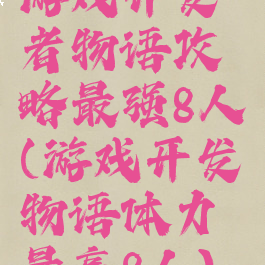 游戏开发
者物语攻
略最强8人
(游戏开发
物语体力
最高8人)